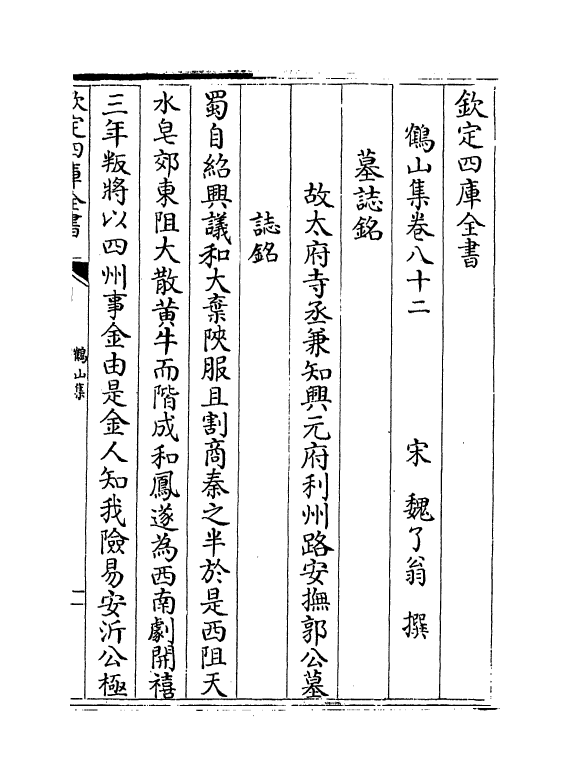 欽定四庫全書
鶴山集卷八十二
宋 魏了翁 撰
墓誌銘
故太府寺丞兼知興元府利州路安撫郭公墓
誌銘
蜀自紹興議和大棄陜服且割商秦之半於是西阻天
水皂郊東阻大散黃牛而階成和鳳遂為西南劇開禧
三年叛將以四州事金由是金人知我險易安沂公極
欽定四庫全書
鶴山集